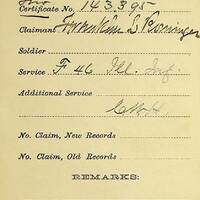 Certificate No. 143.395
Claimant Franklin S
Soldier
Service F 46 Ill. Inf.
Additional Service
No. Claim, New Records
No. Claim, Old Records
REMARKS: